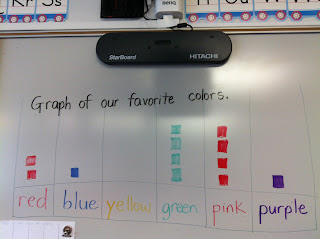 Kk Ss
BenQ
StarBoard HITACHI
Graph of our favorite colors.
red blue yellow green pink purple